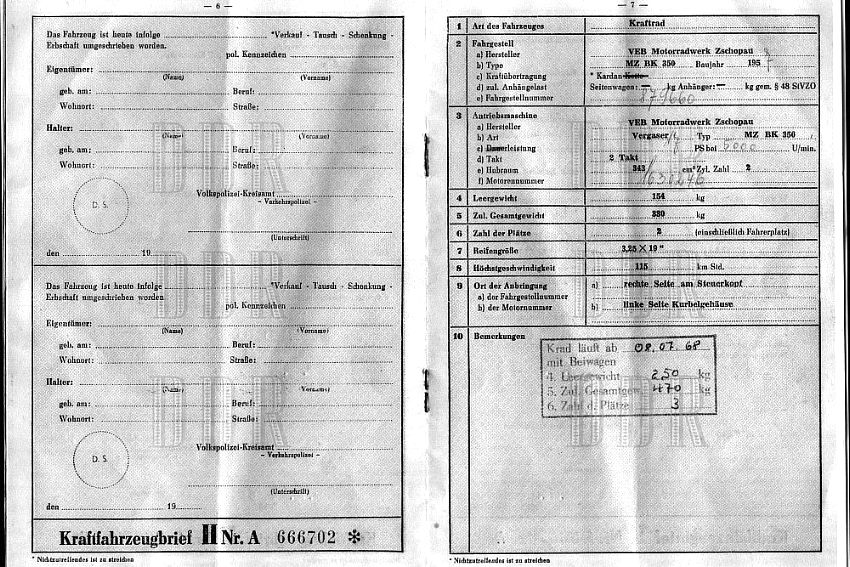 — 6 —
Das Fahrzeug ist heute infolge *Verkauf - Tausch - Schenkung -
Erbschaft umgeschrieben worden.
pol. Kennzeichen
Eigentümer:
(Name) (Vorname)
geb. am: Beruf:
Wohnort: Straße:
Halter:
(Name) (Vorname)
geb. am: Beruf:
Wohnort: Straße:
Volkspolizei-Kreisamt
- Verkehrspolizei -
D. S.
(Unterschrift)
den 19
Das Fahrzeug ist heute infolge *Verkauf - Tausch - Schenkung -
Erbschaft umgeschrieben worden
pol. Kennzeichen
Eigentümer:
(Name) (Vorname)
geb. am: Beruf:
Wohnort: Straße:
Halter:
(Name) (Vorname)
geb. am: Beruf:
Wohnort: Straße:
Volkspolizei-Kreisamt
- Verkehrspolizei -
D. S.
(Unterschrift)
den 19
Kraftfahrzeugbrief II Nr. A 666702 *
* Nichtzutreffendes ist zu streichen
— 7 —
1 Art des Fahrzeuges Kraftrad
2 Fahrgestell
a) Hersteller VEB Motorradwerk Zschopau
b) Type MZ BK 350 Baujahr 195
c) Kraftübertragung * Kardan-Kette
d) zul. Anhängelast Seitenwagen: — kg Anhänger: — kg gem. § 48 StVZO
e) Fahrgestellnummer 879660
3 Antriebsmaschine
a) Hersteller VEB Motorradwerk Zschopau
b) Art Vergaser Typ MZ BK 350
c) Dauerleistung PS bei 5000 U/min.
d) Takt 2 Takt
e) Hubraum 343 cm³ Zyl. Zahl 2
f) Motornummer 1630246
4 Leergewicht 154 kg
5 Zul. Gesamtgewicht 330 kg
6 Zahl der Plätze 2 (einschließlich Fahrerplatz)
7 Reifengröße 3,25 X 19 "
8 Höchstgeschwindigkeit 115 km Std.
9 Ort der Anbringung a) rechte Seite am Steuerkopf
a) der Fahrgestellnummer
b) der Motornummer b) linke Seite Kurbelgehäuse
10 Bemerkungen
Krad läuft ab 08.07.68
mit Beiwagen
4. Leergewicht 250 kg
5. Zul. Gesamtgew. 470 kg
6. Zahl d. Plätze 3
DDR
* Nichtzutreffendes ist zu streichen